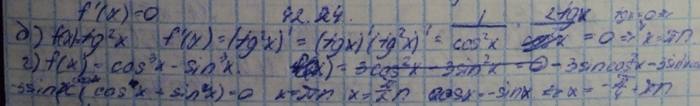 f'(x)=0 42.24.
б) f(x)=tg²x f'(x)=(tg²x)'=(tgx)'(tg²x)'= 1/cos²x · 2tgx =0 => x=πn
г) f(x)=cos³x-sin³x. =3cos²x-3sin²x=0 -3sinxcos²x-3sin²x
-3sinx (cosx + sinx)=0 x=πn cosx=-sinx => x=-π/4+πn